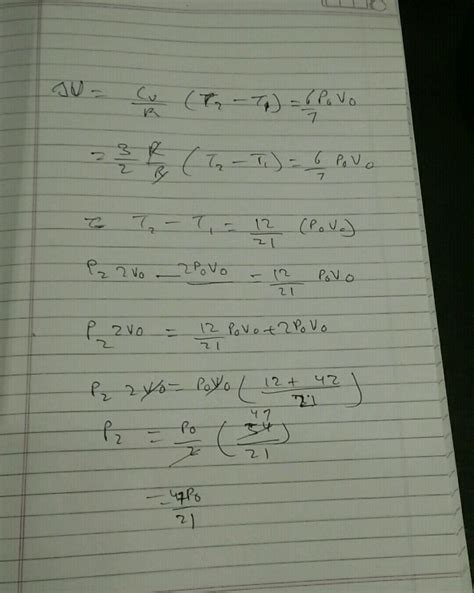 ΔU = Cv/R (T₂ − T₁) = 6/7 P₀V₀
= 3/2 R/R (T₂ − T₁) = 6/7 P₀V₀
T₂ − T₁ = 12/21 (P₀V₀)
P₂ 2V₀ − 2P₀V₀ = 12/21 P₀V₀
P₂ 2V₀ = 12/21 P₀V₀ + 2P₀V₀
P₂ 2V₀ = P₀V₀ (12 + 42 / 21)
P₂ = P₀/2 (54/21)
= P₀/21